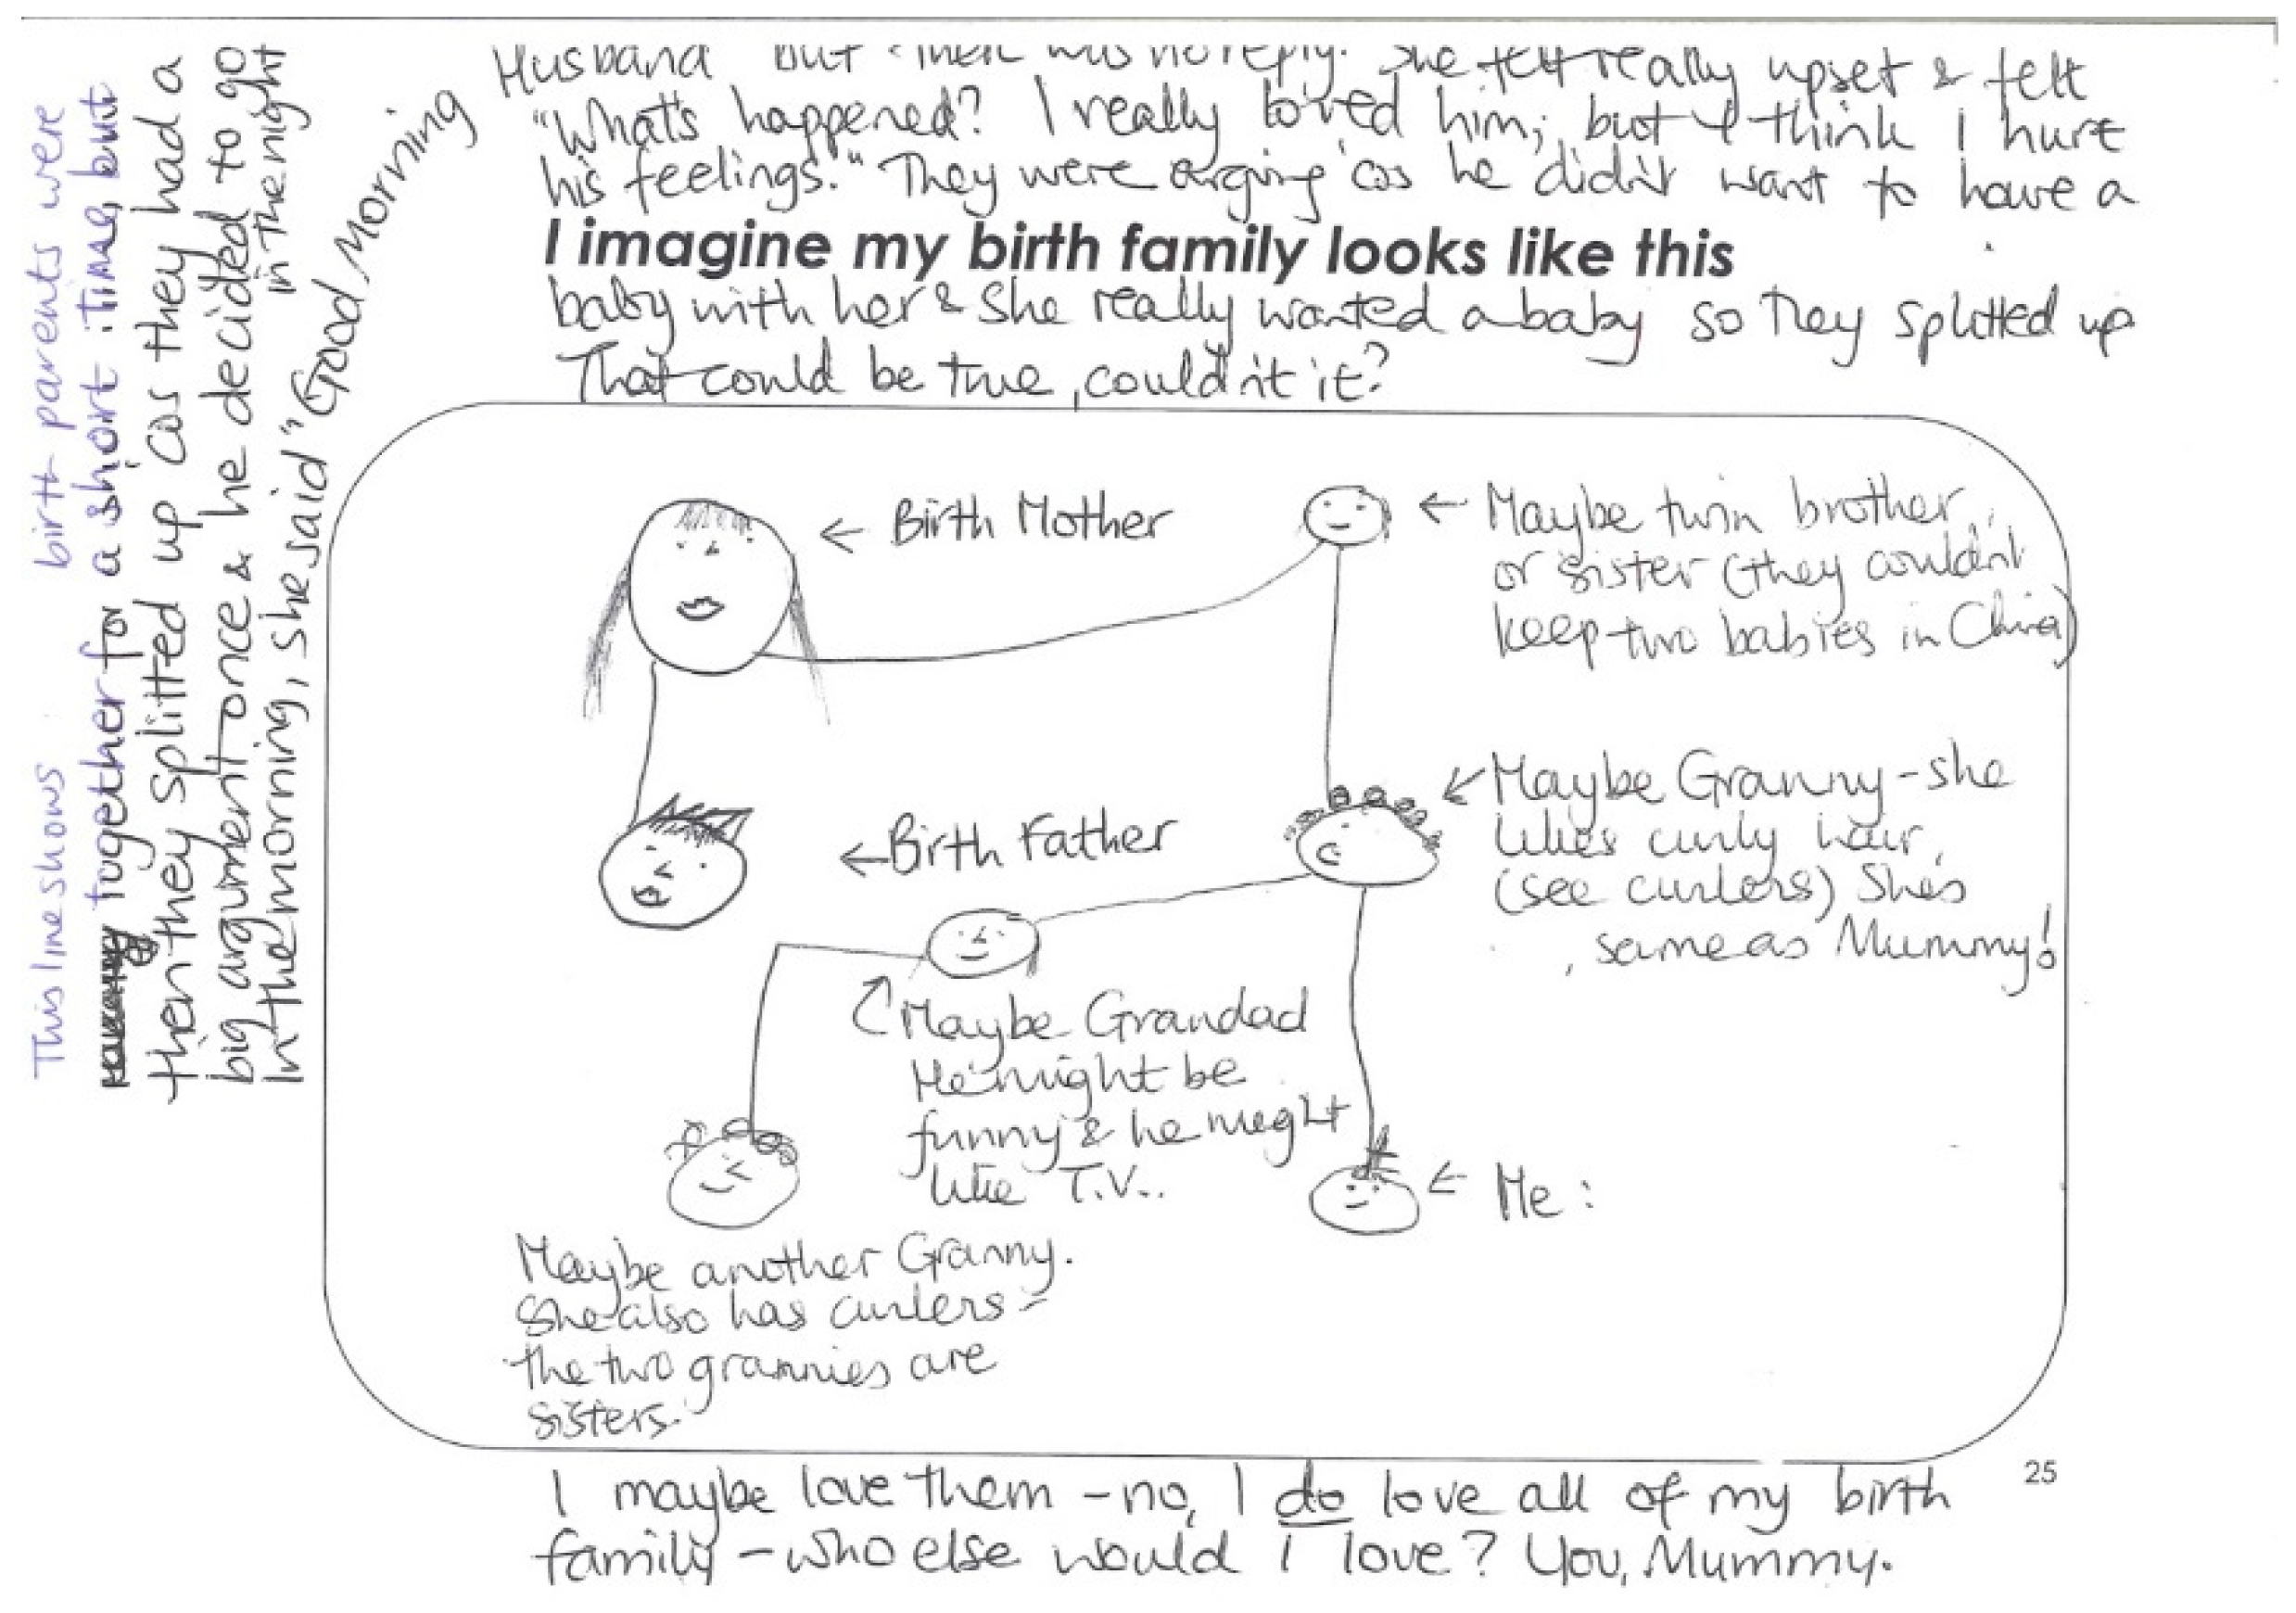 This line shows birth parents were
together for a short time, but
then they splitted up cos they had a
big argument once & he decided to go
in the night
In the morning, she said "Good Morning
Husband but there was no reply. She felt really upset & felt
"What's happened? I really loved him, but I think I hurt
his feelings." They were arging cos he didn't want to have a
I imagine my birth family looks like this
baby with her & she really wanted a baby so they splitted up
That could be true, couldn't it?
← Birth Mother
← Maybe twin brother
or sister (they couldn't
keep two babies in China)
← Birth Father
← Maybe Granny - she
likes curly hair,
(see curlers) She's
same as Mummy!
Maybe Grandad
He might be
funny & he meght
like T.V..
← Me:
Maybe another Granny.
She also has curlers -
the two grannies are
sisters.
25
I maybe love them - no, I do love all of my birth
family - who else would I love? You, Mummy.